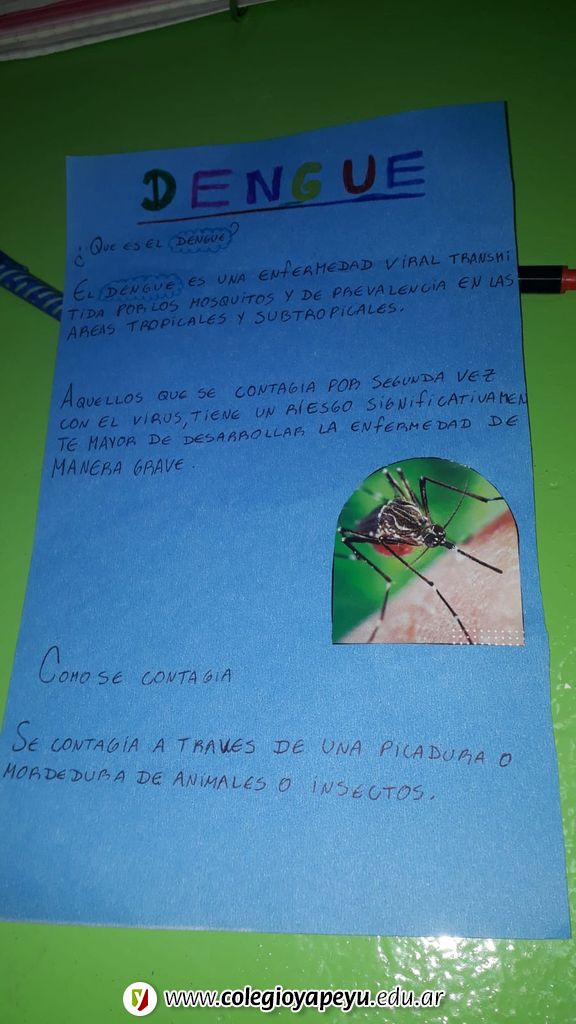 DENGUE
¿QUE ES EL DENGUE?
EL DENGUE ES UNA ENFERMEDAD VIRAL TRANSMI
TIDA POR LOS MOSQUITOS Y DE PREVALENCIA EN LAS
AREAS TROPICALES Y SUBTROPICALES.
AQUELLOS QUE SE CONTAGIA POR SEGUNDA VEZ
CON EL VIRUS, TIENE UN RIESGO SIGNIFICATIVAMEN
TE MAYOR DE DESARROLLAR LA ENFERMEDAD DE
MANERA GRAVE.
COMO SE CONTAGIA
SE CONTAGÍA A TRAVES DE UNA PICADURA O
MORDEDURA DE ANIMALES O INSECTOS.
www.colegioyapeyu.edu.ar